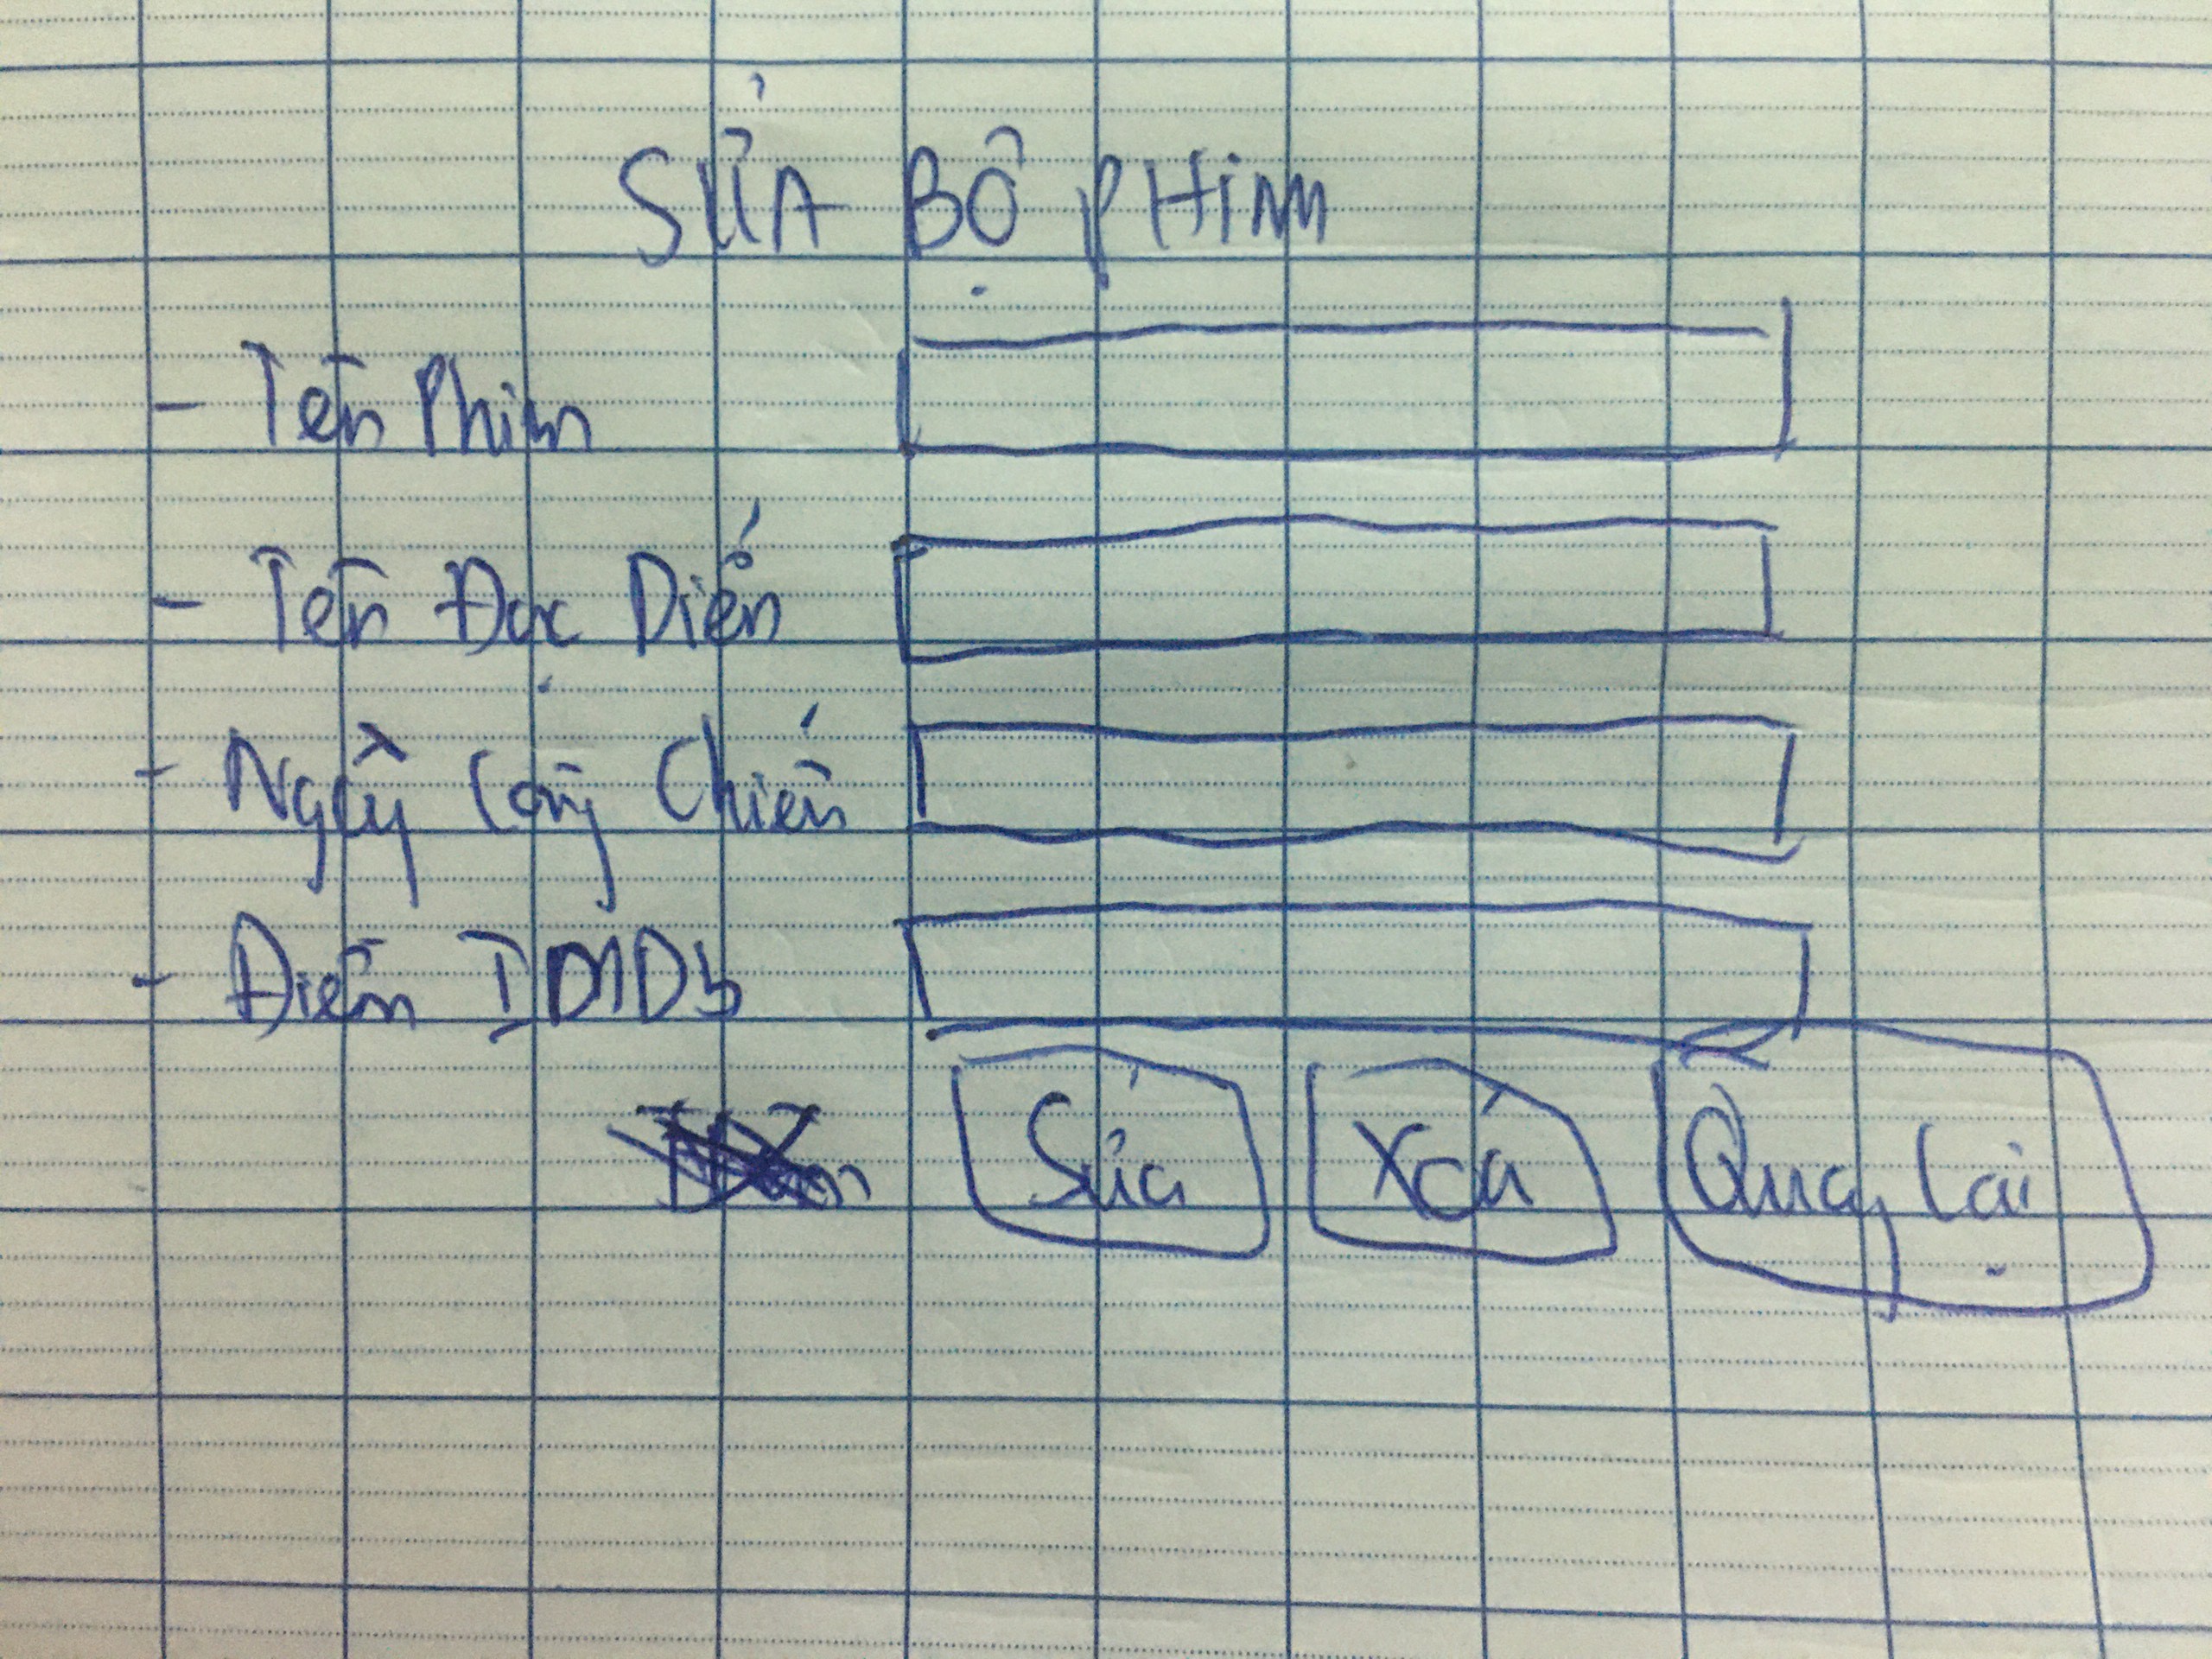 SỬA BỘ PHIM
- Tên Phim
- Tên Đạc Diển
- Ngày Công Chiến
- Điểm IMDb
Sửa Xoá Quay lại